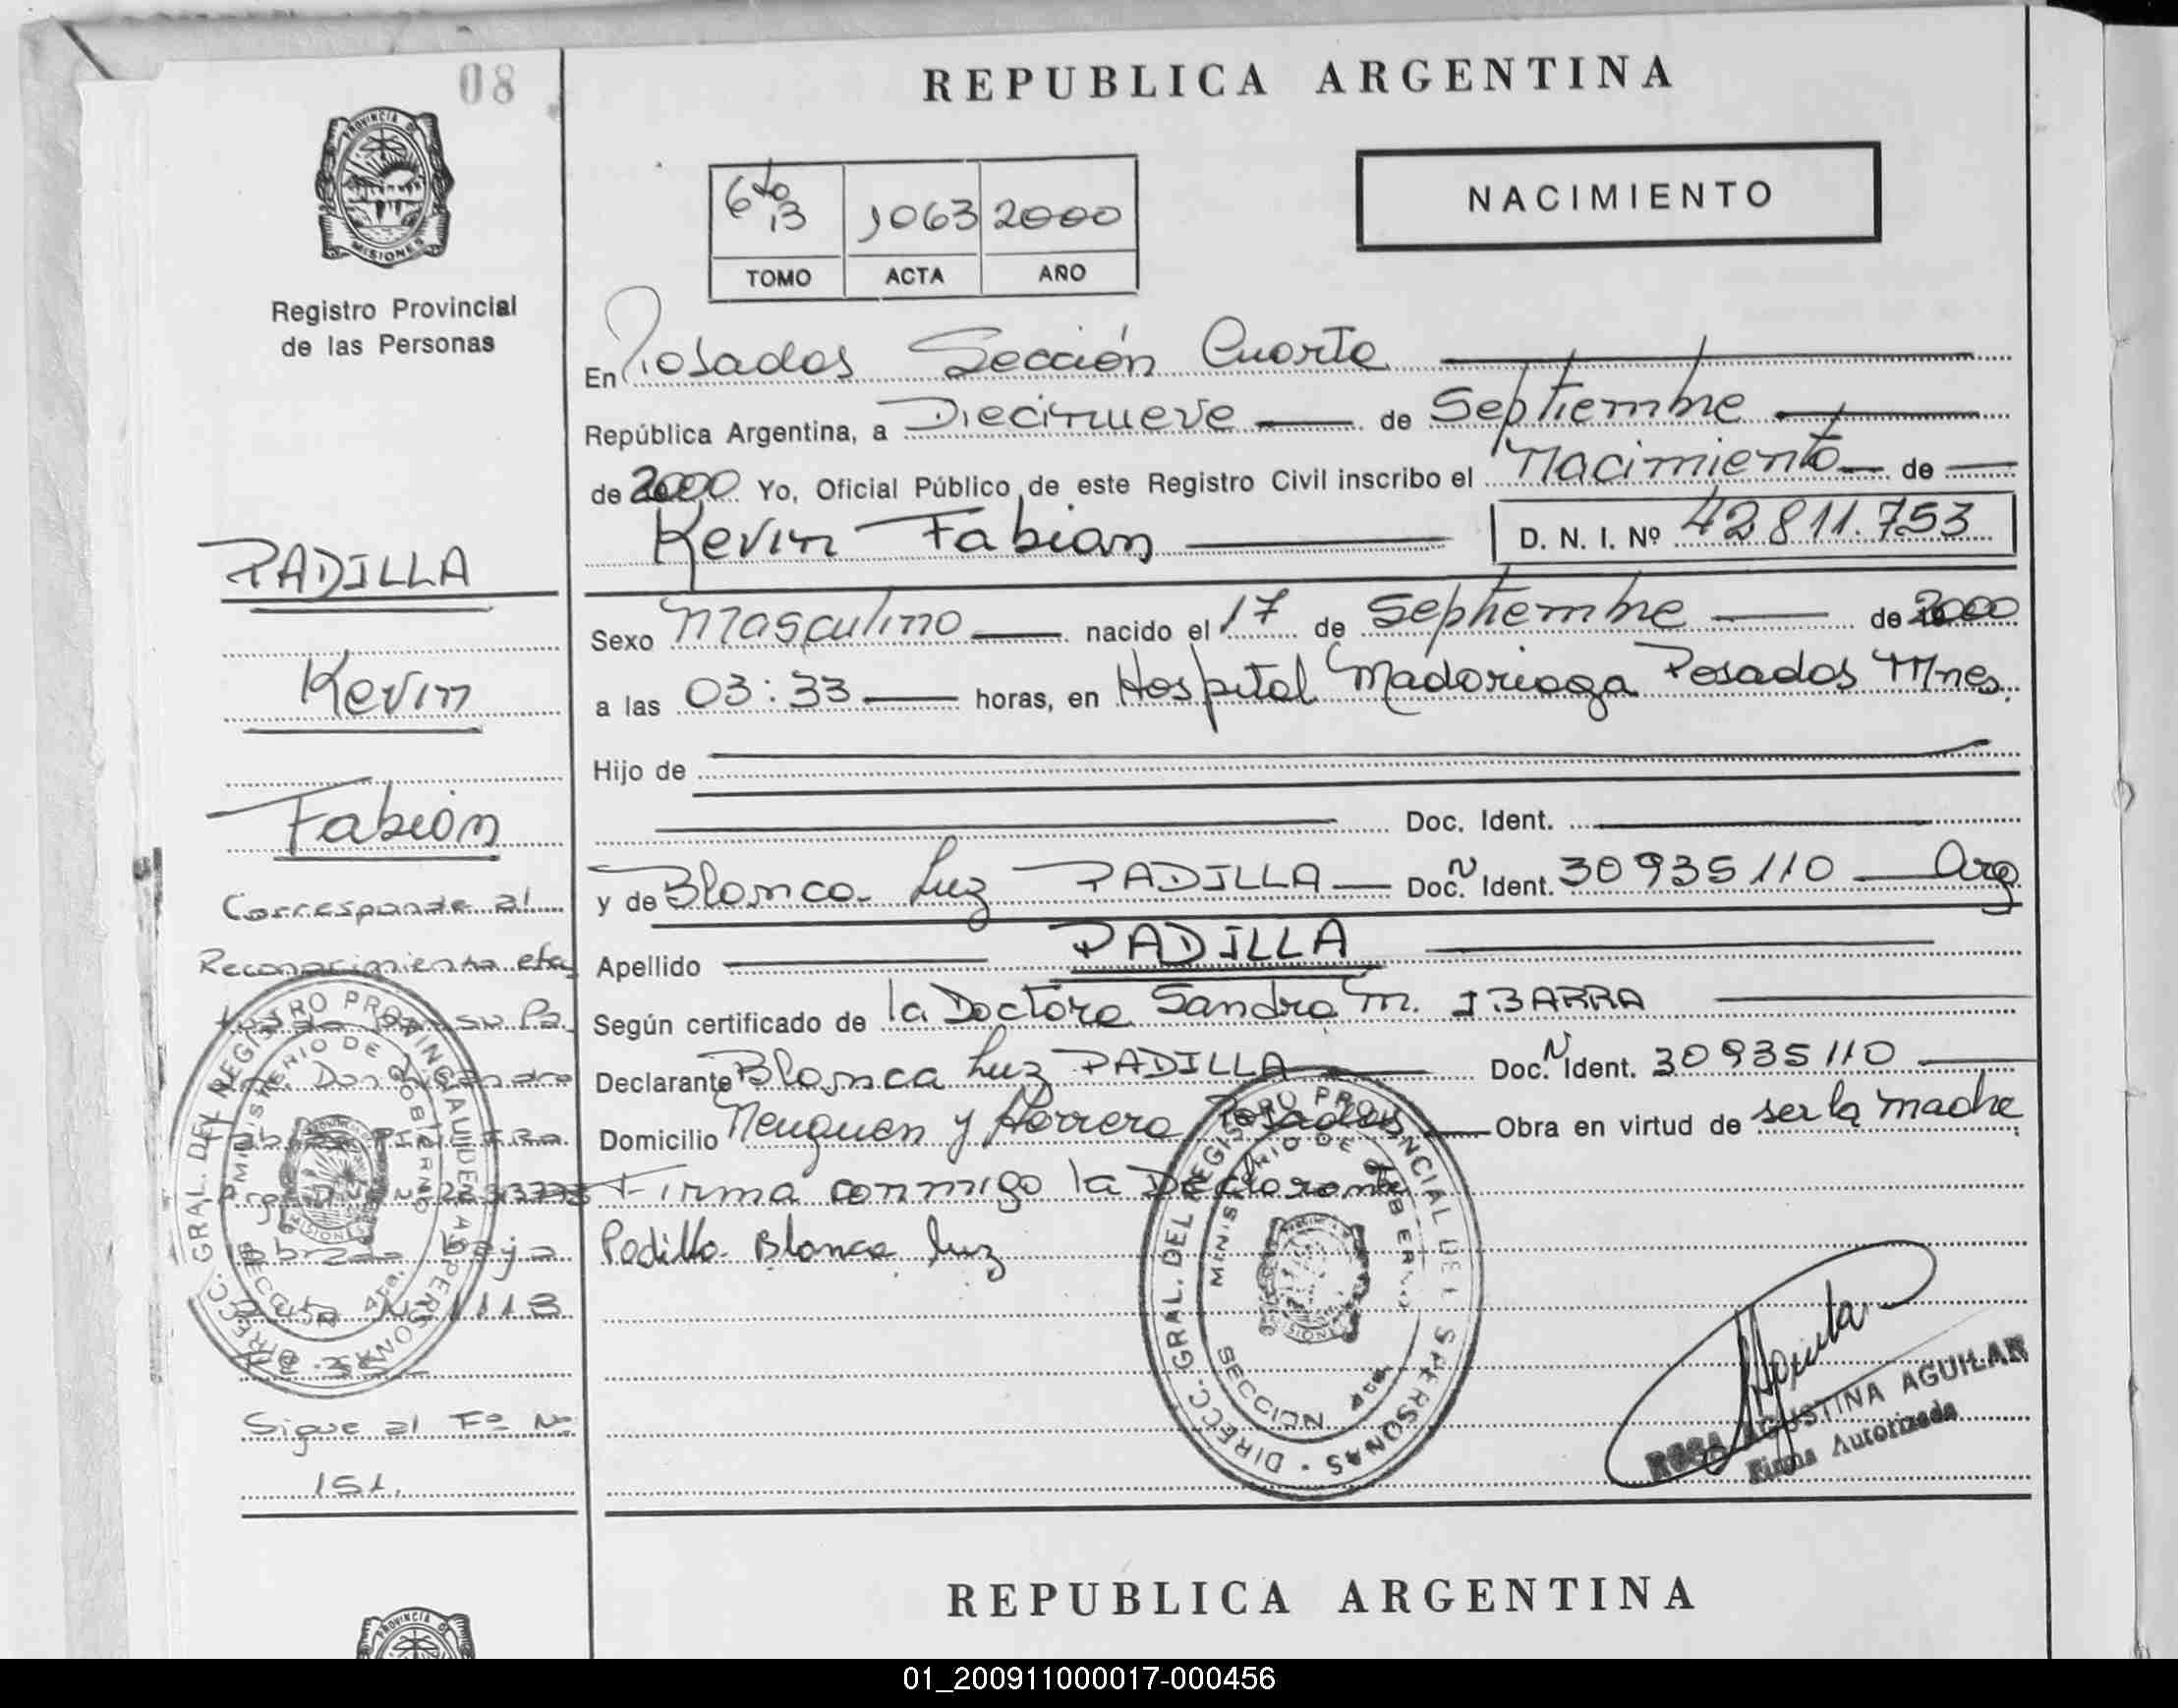 08
REPUBLICA ARGENTINA
PROVINCIA DE
MISIONES
Registro Provincial
de las Personas
NACIMIENTO
6to 13 1063 2000
TOMO ACTA AÑO
En Posadas Sección Cuarta
República Argentina, a Diecinueve de Septiembre
de 2000 Yo, Oficial Público de este Registro Civil inscribo el Nacimiento de
Kevin Fabian D. N. I. Nº 42.811.753
Sexo Masculino nacido el 17 de Septiembre de 2000
a las 03:33 horas, en Hospital Madariaga Posadas Mnes.
Hijo de
Doc. Ident.
y de Blanca Luz PADILLA Doc. N Ident. 30935110 Arg
Apellido PADILLA
Según certificado de la Doctora Sandra M. IBARRA
Declarante Blanca Luz PADILLA Doc. N Ident. 30935110
Domicilio Neuquen y Herrera Posadas Obra en virtud de ser la madre
Firma conmigo la Declarante
Padilla Blanca Luz
DIRECC. GRAL. DEL REGISTRO PROVINCIAL DE LAS PERSONAS
MINISTERIO DE GOBIERNO
SECCION 4ta.
ROSA AGUSTINA AGUILAR
Firma Autorizada
PADILLA
Kevin
Fabián
Corresponde al
Reconocimiento efec
tuado por su Pa
Don
Arg
bajo
Acta Nº 1113
Sigue al Fº Nº
151.
DIRECC. GRAL. DEL REGISTRO PROVINCIAL DE LAS PERSONAS
MINISTERIO DE GOBIERNO
SECCION 4ta.
REPUBLICA ARGENTINA
PROVINCIA
01_200911000017-000456